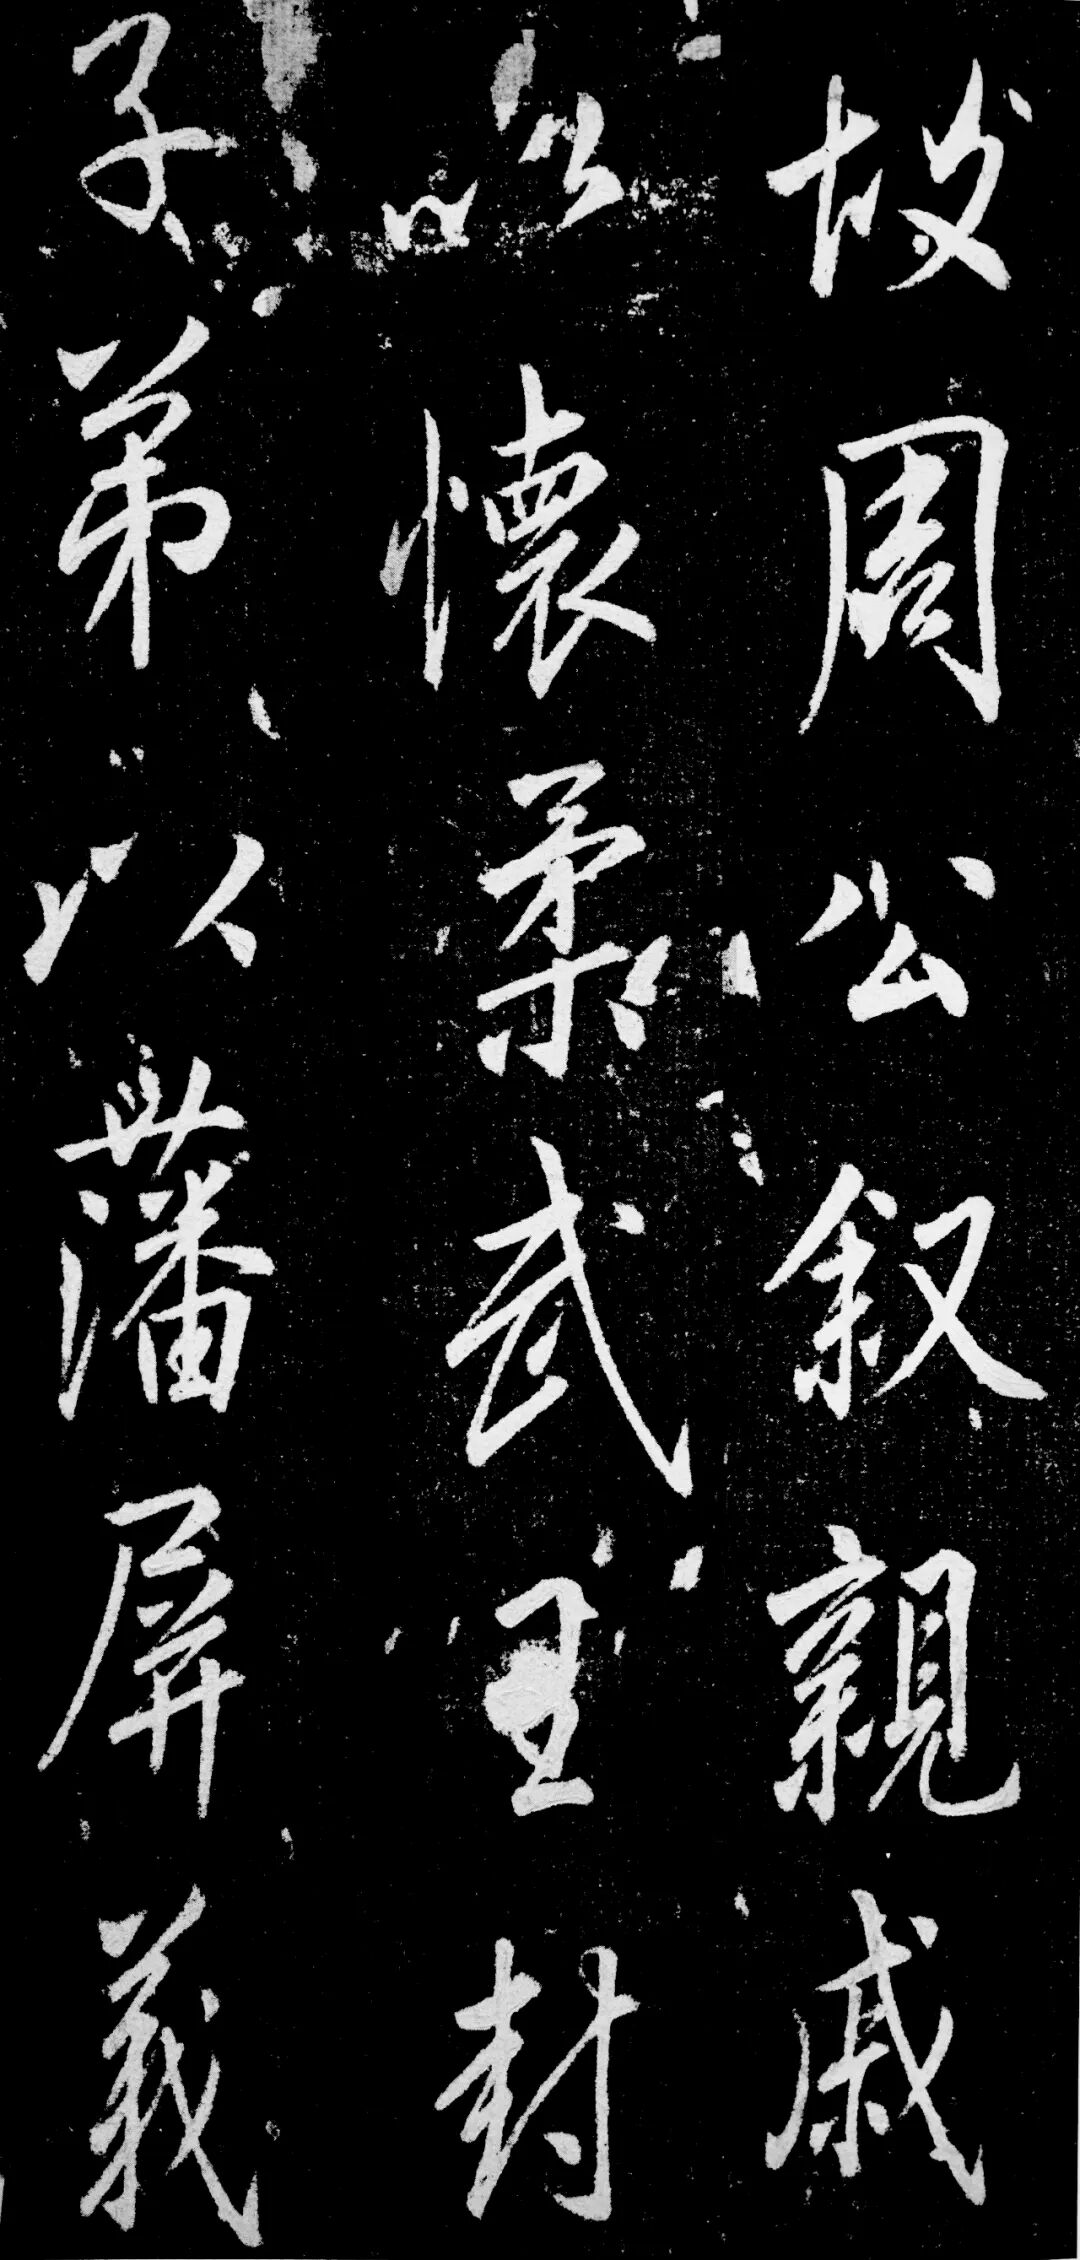 故周公叙親戚
以懷柔武王封
子弟以藩屏義